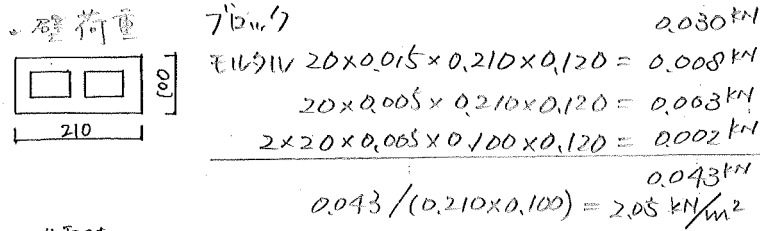 ・壁荷重 ブロック 0.030 kN
モルタル 20×0.015×0.210×0.120 = 0.008 kN
20×0.005×0.210×0.120 = 0.003 kN
2×20×0.005×0.100×0.120 = 0.002 kN
0.043 kN
0.043/(0.210×0.100) = 2.05 kN/m²
100
210